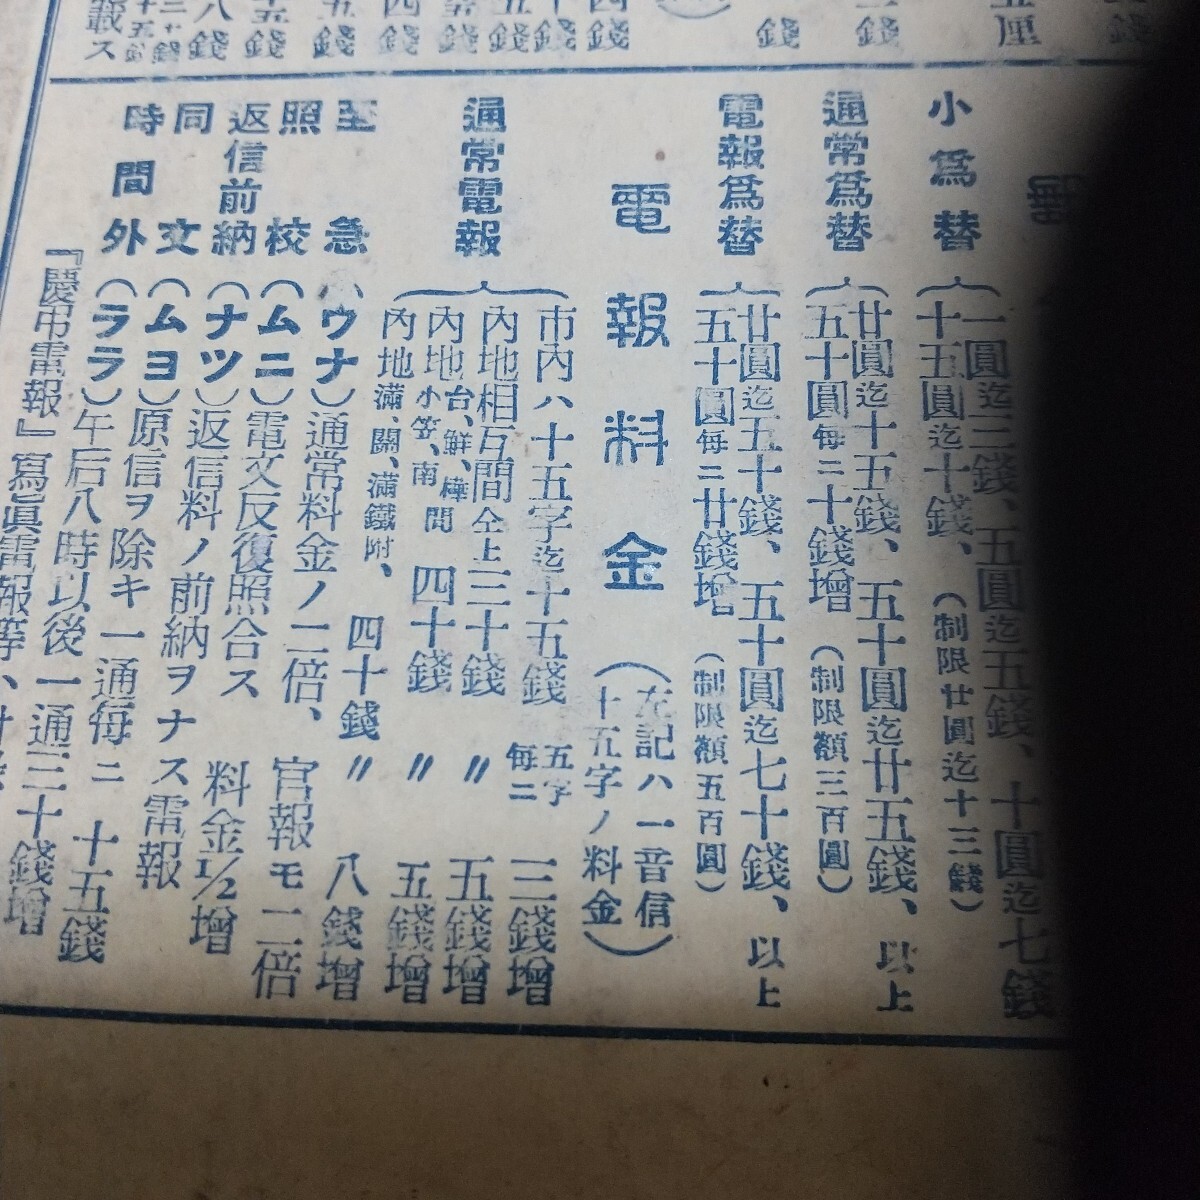 小爲替
一圓迄三錢、五圓迄五錢、十圓迄七錢
十五圓迄十錢、(制限廿圓迄十三錢)
通常爲替
廿圓迄十五錢、五十圓迄廿五錢、以上
五十圓每ニ十錢增(制限額三百圓)
電報爲替
廿圓迄五十錢、五十圓迄七十錢、以上
五十圓每ニ廿錢增(制限額五百圓)
電報料金
(左記ハ一音信
十五字ノ料金)
通常電報
市内ハ十五字迄十五錢 五字每ニ 三錢增
內地相互間仝上三十錢 〃 五錢增
內地台、鮮、樺小笠、南間 四十錢 〃 五錢增
內地滿、關、滿鐵附、 四十錢 〃 八錢增
至急(ウナ)通常料金ノ二倍、官報モ二倍
照校(ムニ)電文反復照合ス 料金1/2增
返信前納(ナツ)返信料ノ前納ヲナス電報
同文(ムヨ)原信ヲ除キ一通每ニ 十五錢
時間外(ララ)午后八時以後一通三十錢增
『慶弔電報』寫眞電報等、